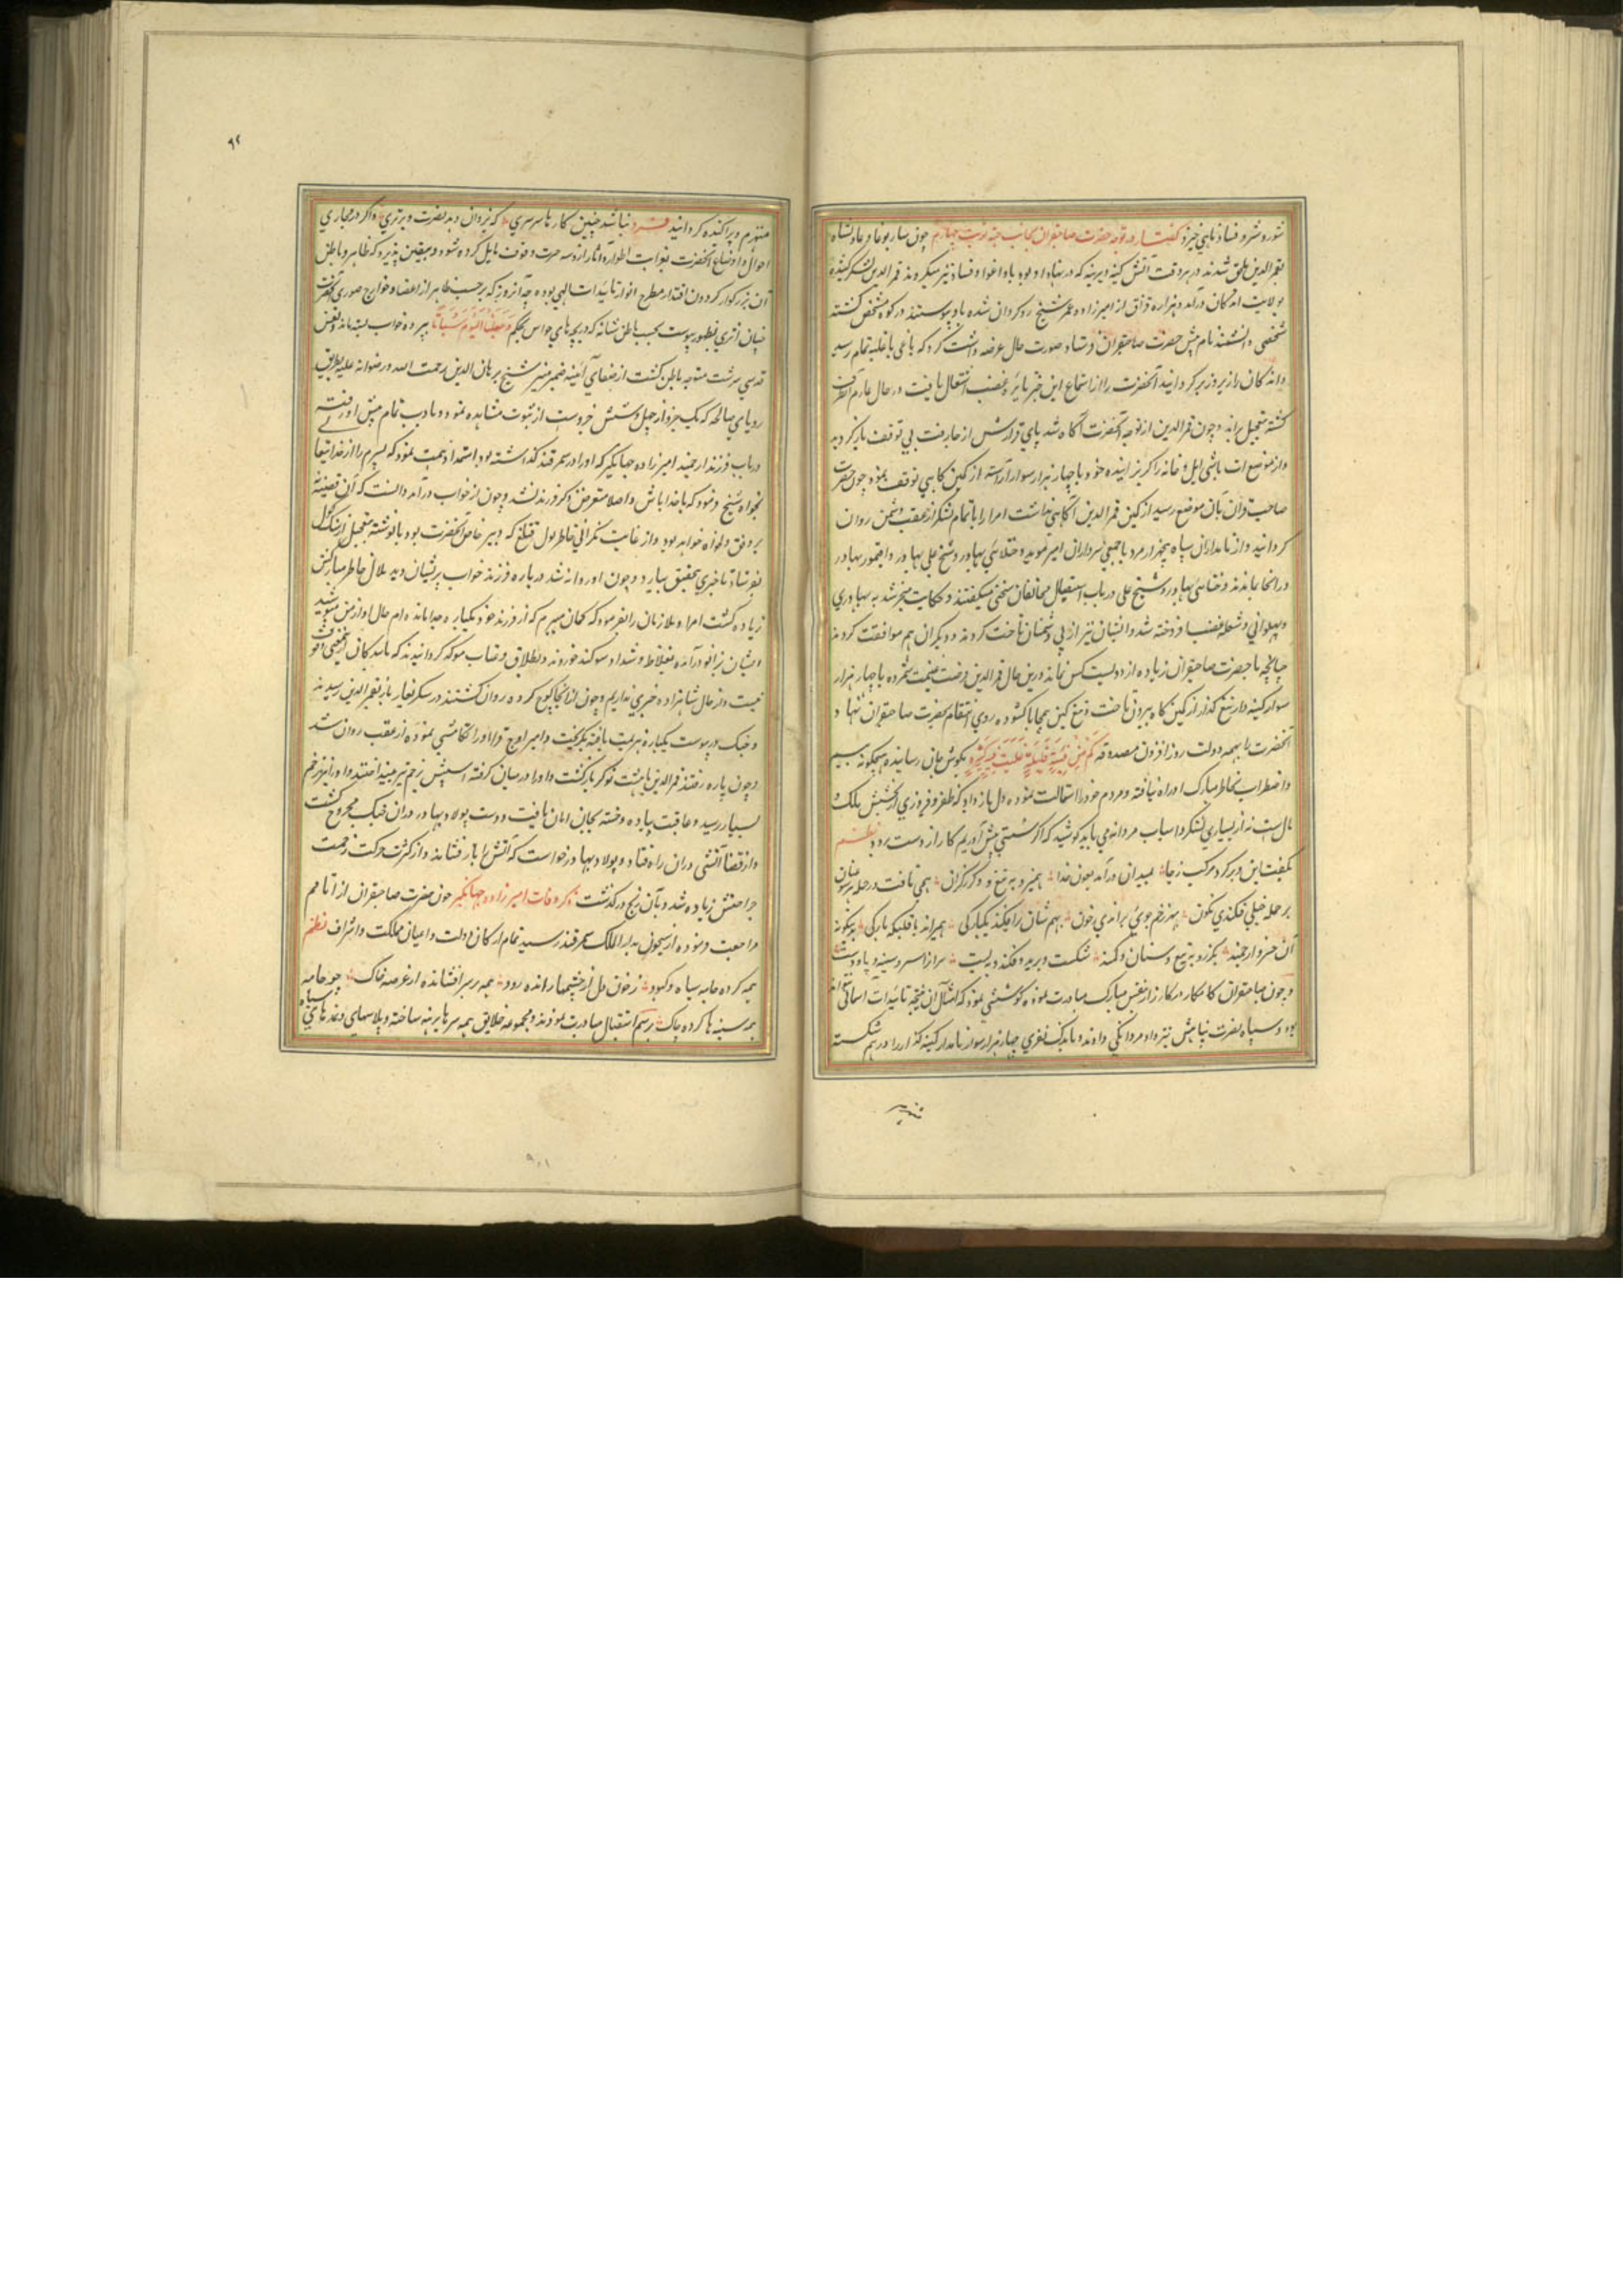 شور و شر و فساد ناهی خیزد گفتار در توجه حضرت صاحبقران بجانب جته نوبت چهارم چون ساربوغا و عادلشاه
بقمر الدین ملحق شدند در هر وقت آتش کینه دیرینه که در نهاد او بود باد اغوا و فساد تیز میکردند قمر الدین لشکر کشیده
بولایت اندکان درآمد و هزاره قزاق از امیرزاده عمر شیخ روکردان شده باو پیوستند در کوه متحصن کشته
شخصی دانشمند نام پیش حضرت صاحبقران فرستاد و صورت حال عرضه داشت کرد که یاغی با غلبه تمام رسید
و اندکان را زیر و زبر کردانید آنحضرت را از استماع این خبر نایره غضب اشتعال یافت در حال عازم آنطرف
کشته بتعجیل براند و چون قمر الدین از توجه آنحضرت آگاه شد پای قرارش از جا برفت بی توقف باز کردید
و از موضع ات باشی ایل و خانه را کریزانیده خود با چهار هزار سوار آراسته از کمین کاهی توقف نمود چون حضرت
صاحب قران بآن موضع رسید از کمین قمر الدین آگاهی نداشت امرا را با تمام لشکر از عقب دشمن روان
کردانید و از نامداران سپاه پنجهزار مرد با جمعی سرداران امیر موید و ختای بهادر و شیخ علی بهادر و اقتمور بهادر
در آنجا بماندند و ختای بهادر و شیخ علی در باب استقبال مخالفان سخنی میگفتند و حکایت منجر شد به بهادری
و پهلوانی و شعله غضب افروخته شد و ایشان نیز از پی دشمنان تاخت کردند و دیگران هم موافقت کردند
چنانچه با حضرت صاحبقران زیاده از دویست کس نماند درین حال قمر الدین فرصت غنیمت شمرده با چهار هزار
سوار کینه دار تیغ گذار از کمین گاه بیرون تاخت و تیغ کین بی محابا کشوده روی انتقام بحضرت صاحبقران نهاد و
آنحضرت را بهمه دولت روز افزون مصدوقه كَم مِن فِئَةٍ قَلِيلَةٍ غَلَبَت فِئَةً كَثِيرَةً بکوش جان رسانیده هیچکونه بیم
و اضطراب بخاطر مبارک او راه نیافته و مردم خود را استمالت نموده دل باز داد که ظفر و فیروزی از بخشش ملک
مال است نه از بسیاری لشکر و اسباب مردانه می باید کوشید که اگر سستی پیش آوریم کار از دست برود نظم
بگفت این و برکرد مرکب ز جا بمیدان درآمد بعون خدا همیزد به تیغ و بگرز گران همی تافت در حمله بر سو عنان
بر حمله خیلی فکندی نگون بهر زخم جوی براندی ز خون بهم شان برافکند یکبارگی همیراند با قلبکه بارگی برین گونه
آن خسرو ارجمند بگرز و بتیغ و سنان و کمند شکست و برید و فکند و ببست سران را سر و سینه و پا و دست
و چون صاحبقران کامکار در کارزار بنفس مبارک مبادرت نموده کوششی نمود که امثال آن نتیجه تائیدات آسمانی تواند
بود و سپاه نصرت پناهش نیز داد مردانگی دادند و باندک نفری چهار هزار سوار نامدار کینه گذار را در هم شکسته
منهزم
۹۲
منهزم و پراکنده کردانید فرد نباشد چنین کارها سرسری که یزدان دهد نصرت و برتری و اکر در مجاری
احوال و اوضاع آنحضرت بثواب اطوار و آثار از وسه حرت وقوف تامل کرده شود و بیقین پذیرد که ظاهر و باطن
آن بزرگوار گردون اقتدار مطرح انوار تائیدات الهی بوده چه آنروز که بر حسب ظاهر از اعضا و جوارح صوری آنحضرت
چنان اثری بظهور پیوست بحسب باطن شبانه که دریچه های حواس بحکم وَجَعَلْنَا النَّوْمَ سُبَاتًا بپرده خواب بسته ماند و نفس
قدسی سرشت متوجه باطن کشت از صفای آئینه ضمیر منیر شیخ برهان الدین رحمت الله و رضوانه علیه بطریق
رویای صالحه که یک جزو از چهل و شش جزوست از نبوت مشاهده نمود و باادب تمام پیش او رفته
در باب فرزند ارجمند امیرزاده جهانگیر که او را در سمرقند گذاشته بود استمداد همت نمود که پسرم را از خدایتعالی
بخواه شیخ فرمود که با خدا باش و اصلا متعرض ذکر فرزند نشد و چون از خواب درآمد دانست که آن قضیه
بر وفق دلخواه نخواهد بود و از غایت نگرانی خاطر بول قتلغ که دبیر خاص آنحضرت بود با نوشته بتعجیل
بفرستاد تا خبری تحقیق بیارد و چون او روانه شد درباره فرزند خواب پریشان دید ملال خاطر مبارکش
زیاده گشت امرا و ملازمان را فرمود که گمان میبرم که از فرزند خود یکباره جدا مانده ام حال او از من مپوشید
ایشان بزانو درآمده بغلاظ و شداد سوکند خوردند و بطلاق و عتاب موکد کردانیدند که ما بندگان را وقوف
نیست و از حال شاهزاده خبری نداریم و چون از آنجا کوچ کرده روان کشتند در سنکز یغاج باز بقمر الدین رسیدند
و جنک در پیوست یکباره هزیمت یافته بگریخت و امیر اوچ قرا او را تکامشی نموده از عقب روان شد
و چون پاره رفتند قمر الدین با هشت نوکر بازگشت و او را در میان گرفته اسپش بزخم تیر بینداختند و او را نیز زخم
بسیار رسید و عاقبت پیاده و خسته بجان امان یافت و دست پولاد بهادر در آن جنک مجروح گشت
و از قضا آتشی در آن راه فتاد و پولاد بهادر خواست که آتش را باز فشاند و از کثرت حرکت زحمت
جراحتش زیاده شد و بآن رنج درگذشت ذکر وفات امیرزاده جهانگیر چون حضرت صاحبقران از آتاقم
مراجعت فرموده از سیحون بدار الملک سمرقند رسید تمام ارکان دولت و اعیان مملکت و اشراف نظم
همه کرده جامه سیاه و کبود ز خون دل از چشمها رانده رود همه بر سر افشانده از غصه خاک چو جامه
همه سینه ها کرده چاک برسم استقبال مبادرت نمودند و مجموعه خلایق همه سرها برهنه ساخته و پلاسهای سیاه